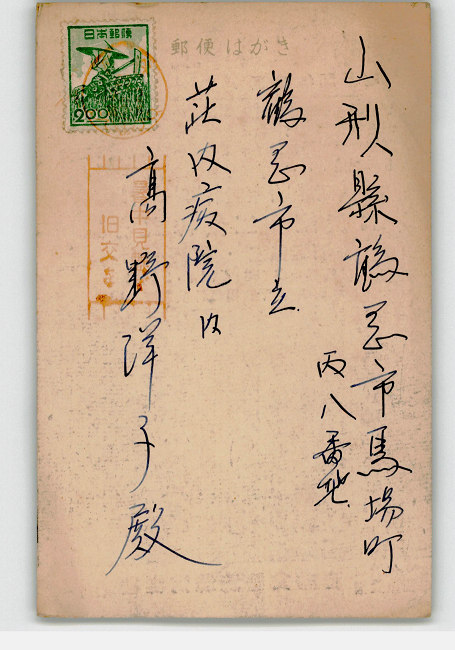 山形縣鶴岡市馬場町
丙八番地
鶴岡市立
荘内病院内
高野洋子殿
郵便はがき
日本郵便
200
暑中見
旧交